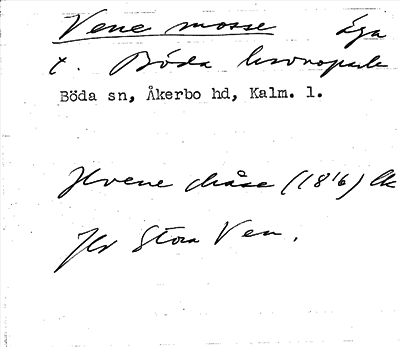 Vene mosse Äga
t. Böda kronopark
Böda sn, Åkerbo hd, Kalm. l.
Hvene måse (1816) lk
Jfr Stora Ven.